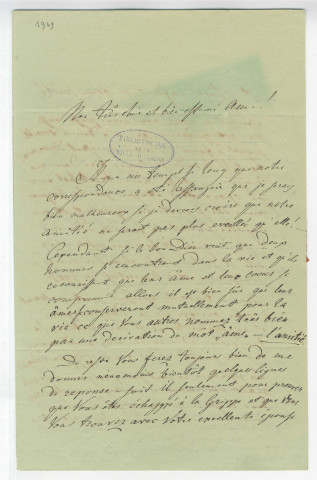 1949
Mon très cher et bien-estimé Ami!
BIBLIOTHECA
Il y a un temps si long que notre
correspondance a été assoupie que je serais
bien malheureux si je devais croire que notre
amitié ne serait pas plus éveillée qu'elle!
Cependant si le bon Dieu veut, que deux
hommes se rencontrent dans la vie et qu'ils
connaissent que leur âme et leur coeur se
comprennent alors il est bien sûr que leurs
âmes conserveront mutuellement pour la
vie ce que vous autres nommez très bien
par une derivation du mot "âme" – l'amitié
Du reste Vous ferez toujours bien de me
donner néanmoins bientôt quelques lignes
de réponse – soit il seulement pour prouver
que Vous êtes echappé à la Grippe et que Vous
Vous trouvez avec Votre excellente épouse